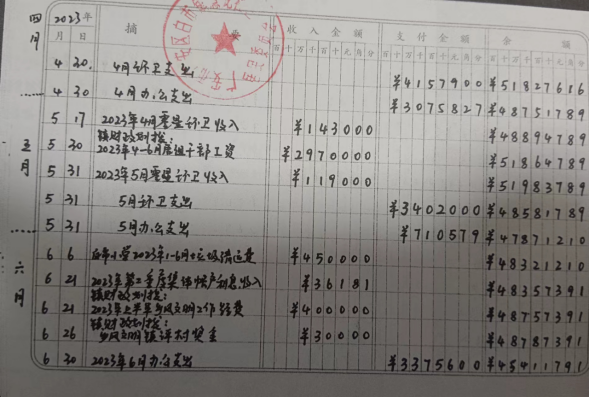 四月
2023年 摘 收入金额 支付金额 余额
月 日 百十万千百十元角分 百十万千百十元角分 百十万千百十元角分
4 30 4月环卫支出 ¥4157900 ¥51827616
4 30 4月办公支出 ¥3075827 ¥48751789
5 17 2023年4月零星环卫收入 ¥143000 ¥48894789
五月
镇财政划拨:
5 30 2023年4-6月居组干部工资 ¥2970000 ¥51864789
5 31 2023年5月零星环卫收入 ¥119000 ¥51983789
5 31 5月环卫支出 ¥3402000 ¥48581789
5 31 5月办公支出 ¥710579 ¥47871210
六月
6 6 小学2023年1-6月垃圾清运费 ¥450000 ¥48321210
6 21 2023年第二季度集体帐户利息收入 ¥36181 ¥48357391
镇财政划拨:
6 21 2023年上半年乡风文明工作经费 ¥400000 ¥48757391
镇财政划拨:
6 26 乡风文明镇评村奖金 ¥30000 ¥48787391
6 30 2023年6月办公支出 ¥3375600 ¥45411791